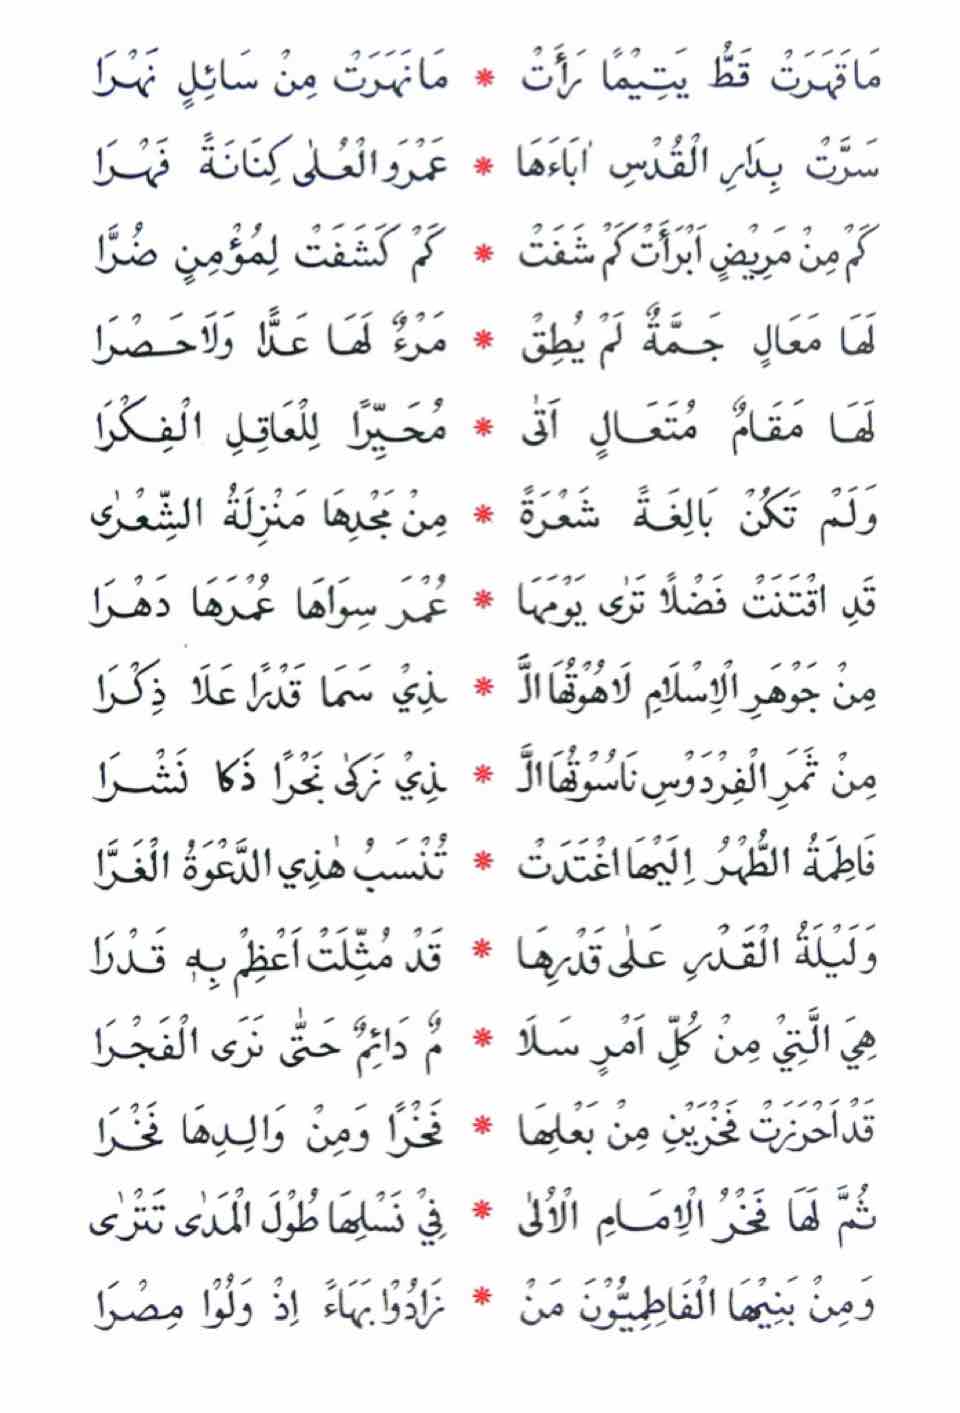 مَا قَهَرَتْ قَطُّ يَتِيْمًا رَأَتْ * مَا نَهَرَتْ مِنْ سَائِلٍ نَهْرَا
سَرَّتْ بِدَارِ الْقُدْسِ اٰبَاءَهَا * عَمْرَو الْعُلٰى كِنَانَةً فَهْرَا
كَمْ مِنْ مَرِيْضٍ اَبْرَأَتْ كَمْ شَفَتْ * كَمْ كَشَفَتْ لِمُؤْمِنٍ ضُرَّا
لَهَا مَعَالٍ جَمَّةٌ لَمْ يُطِقْ * مَرْءٌ لَهَا عَدًّا وَلَا حَصْرَا
لَهَا مَقَامٌ مُتَعَالٍ اَتٰى * مُحَيِّرًا لِلْعَاقِلِ الْفِكْرَا
وَلَمْ تَكُنْ بَالِغَةً شَعْرَةً * مِنْ مَجْدِهَا مَنْزِلَةُ الشِّعْرٰى
قَدِ اقْتَنَتْ فَضْلًا تَرٰى يَوْمَهَا * عُمْرَ سِوَاهَا عُمْرَهَا دَهْرَا
مِنْ جَوْهَرِ الْاِسْلَامِ لَاهُوْتُهَا الَّـ * ـذِيْ سَمَا قَدْرًا عَلَا ذِكْرَا
مِنْ ثَمَرِ الْفِرْدَوْسِ نَاسُوْتُهَا الَّـ * ـذِيْ زَكٰى نَجْرًا ذَكَا نَشْرَا
فَاطِمَةُ الطُّهْرُ اِلَيْهَا اغْتَدَتْ * تُنْسَبُ هٰذِي الدَّعْوَةُ الْغَرَّا
وَلَيْلَةُ الْقَدْرِ عَلٰى قَدْرِهَا * قَدْ مُثِّلَتْ اَعْظِمْ بِهٖ قَدْرَا
هِيَ الَّتِيْ مِنْ كُلِّ اَمْرٍ سَلَا * مٌ دَائِمٌ حَتّٰى نَرَى الْفَجْرَا
قَدْ اَحْرَزَتْ فَخْرَيْنِ مِنْ بَعْلِهَا * فَخْرًا وَمِنْ وَالِدِهَا فَخْرَا
ثُمَّ لَهَا فَخْرُ الْاِمَامِ الْاُلٰى * فِيْ نَسْلِهَا طُوْلَ الْمَدٰى تَتْرٰى
وَمِنْ بَنِيْهَا الْفَاطِمِيُّوْنَ مَنْ * زَادُوْا بَهَاءً اِذْ وَلُوْا مِصْرَا